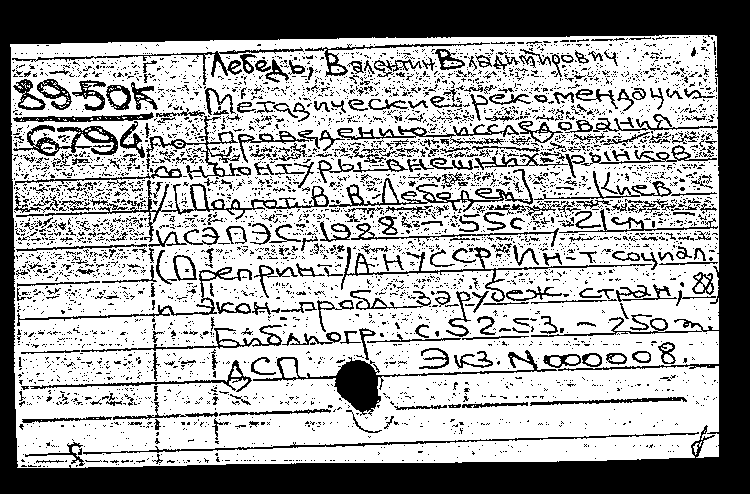 Лебедь, Валентин Владимирович
89-50К
6794
Методические рекомендации
по проведению исследования
конъюнктуры внешних рынков
/[Подгот. В. В. Лебедем] - Киев:
ИСЭПЭС, 1988. - 55с.; 21см. -
(Препринт/АН УССР, Ин-т социал.
и экон. пробл. зарубеж. стран; 88)
Библиогр.: с. 52-53. - 250 т.
ДСП. - Экз. N 000008.
8